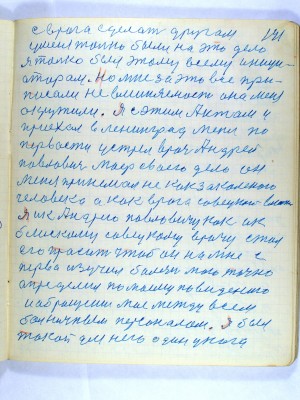 с врага сделат другам 141
умел толко были на это дело
я толко был этому всему иници-
аторам. Но мне за это все при-
писали невминяемости она меня
окружили. Я с этим Актам и
приехал в Ленинград меня по
первости устрел врач Андрей
павлович маер своего дело он
меня принемал не как законого
человека а как врага совецкой власти
Я и к Андрею павловичу как и к
близкаму совецкому врачу стал
его прасит чтобы он на мне с
перва изучил балезн мою точно
определил по маему поведению
и абращении мое между всем
болничным персоналам. Я был
такой для него один у кого